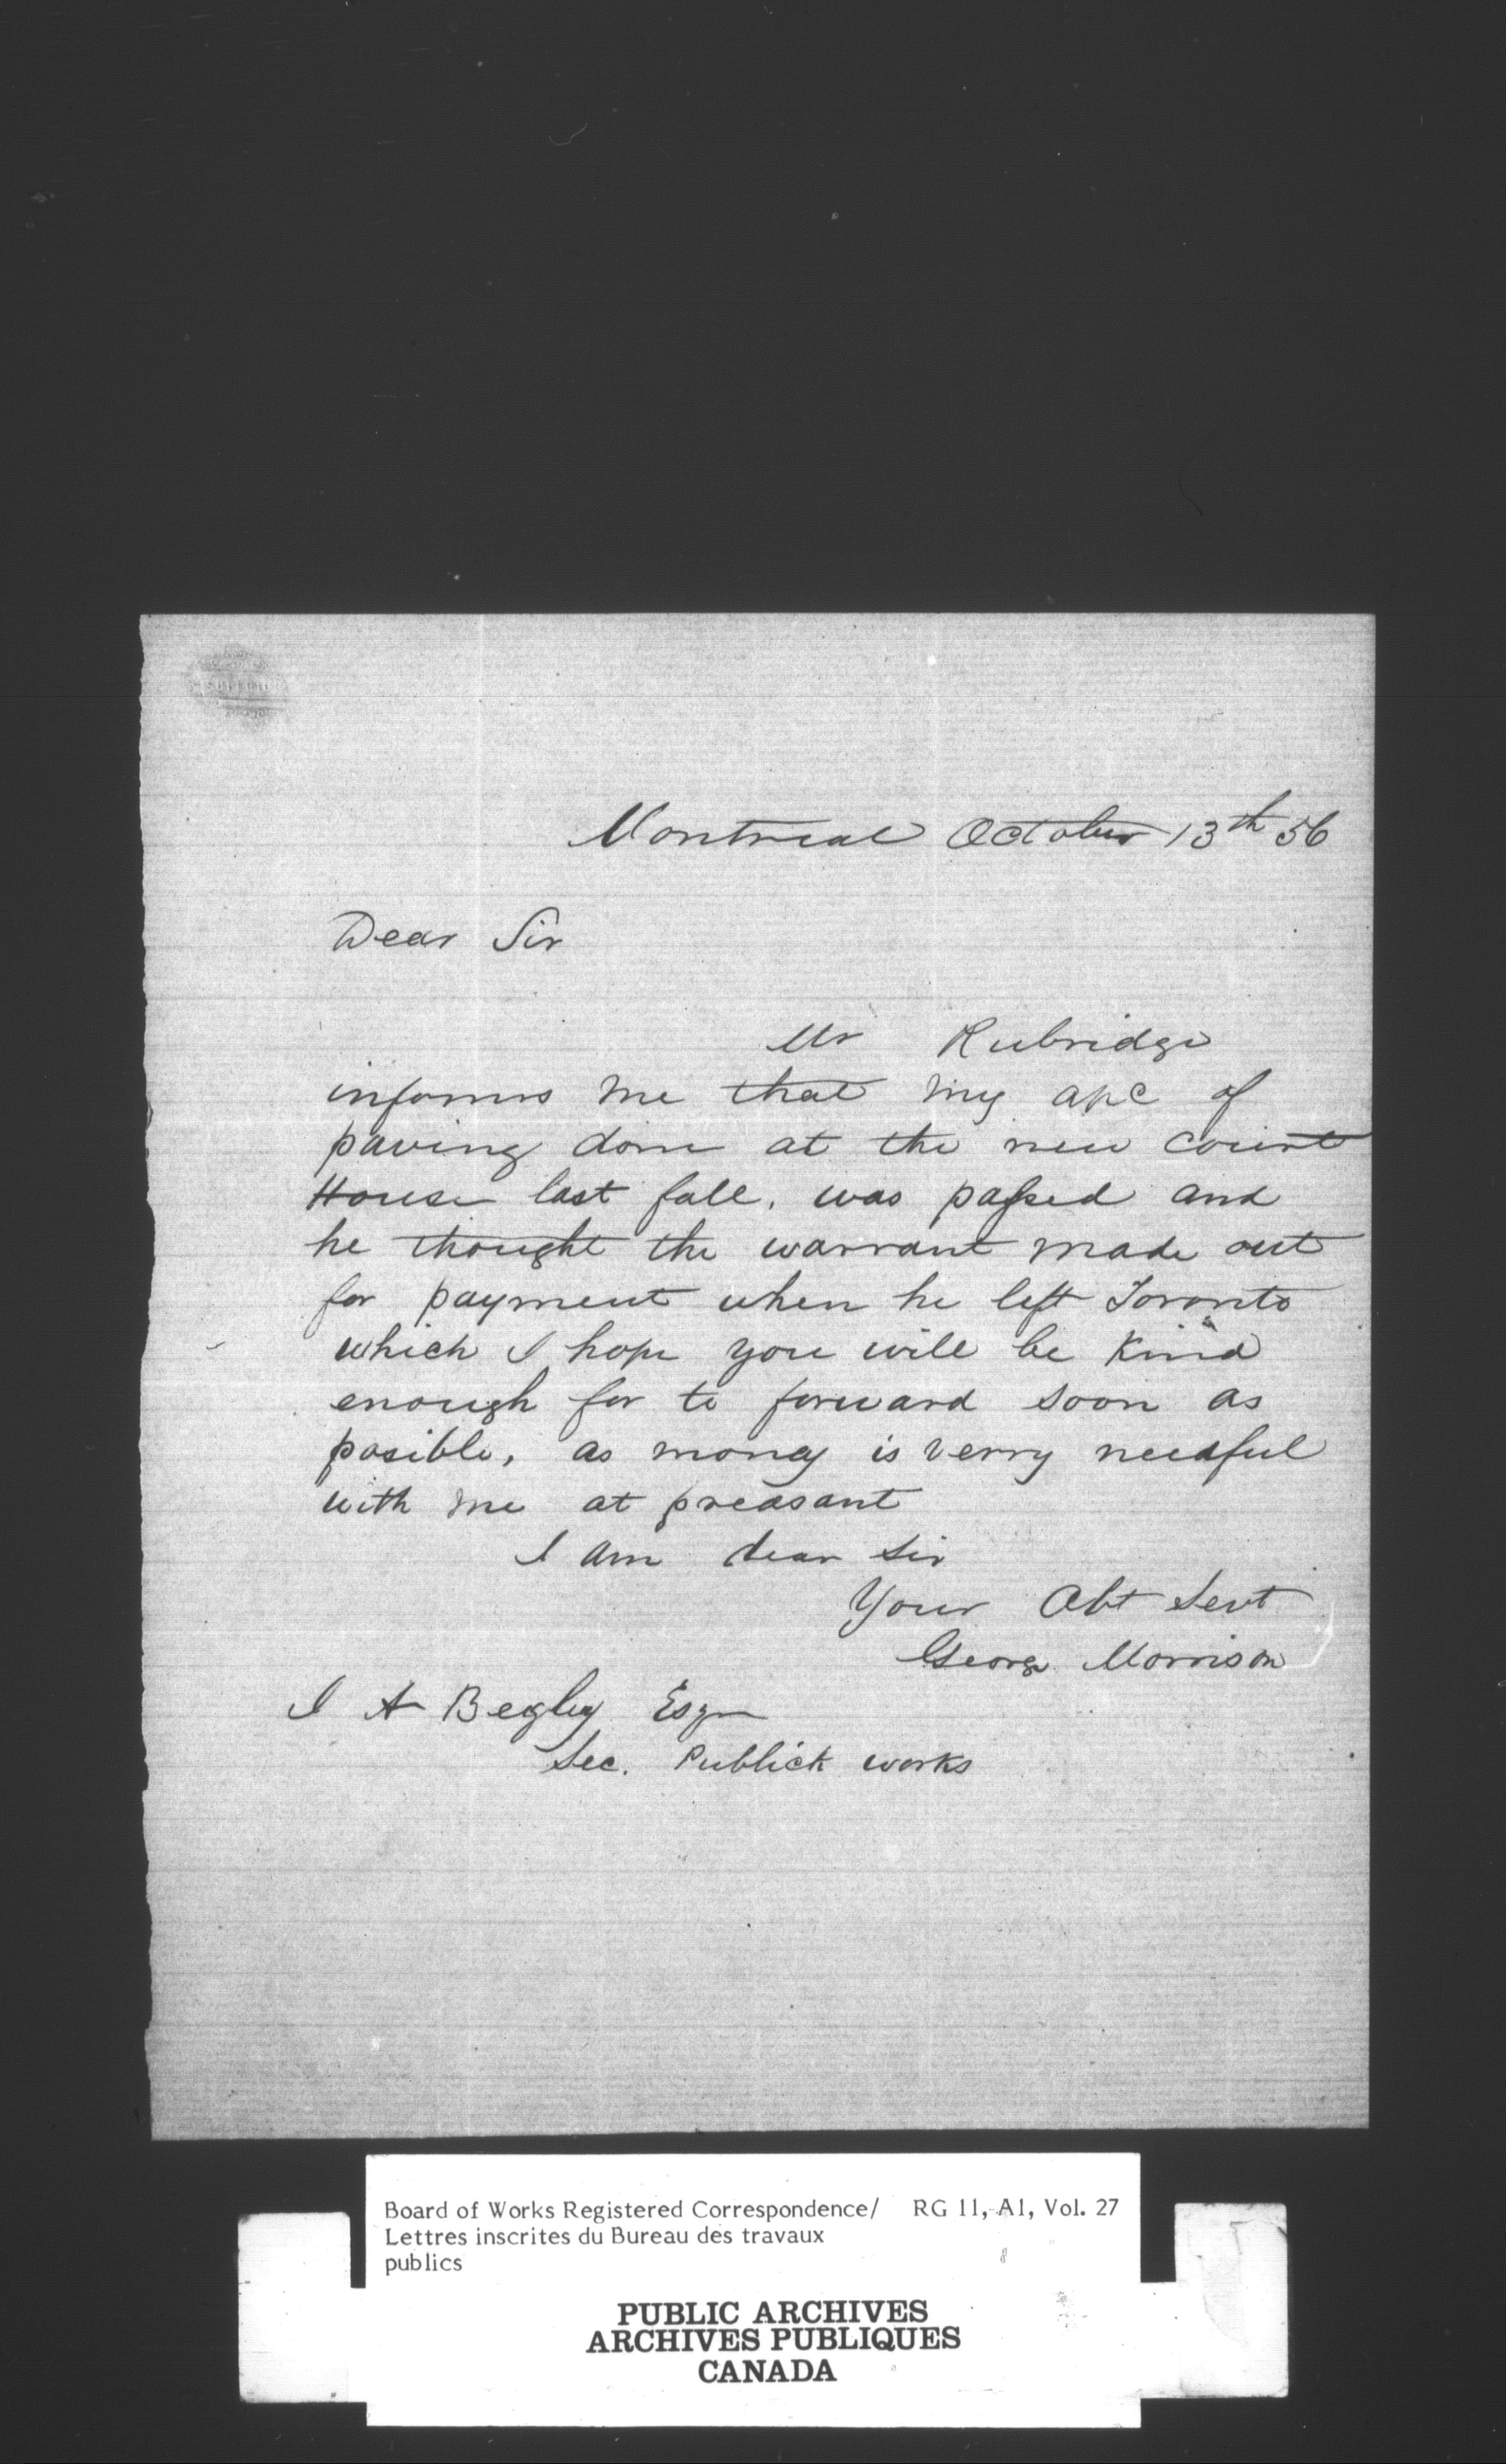 Montreal October 13th 56
Dear Sir
Mr Rubridge
informs me that my apc of
paving done at the new Court
House last fall, was passed and
he thought the warrant made out
for payment when he left Toronto
which I hope you will be kind
enough for to forward soon as
posible, as money is verry needful
with me at preasant
I am dear sir
Your Obt Servt
George Morrison
J A Begley Esqr
Sec. Publick works
Board of Works Registered Correspondence/ RG 11, A1, Vol. 27
Lettres inscrites du Bureau des travaux
publics
PUBLIC ARCHIVES
ARCHIVES PUBLIQUES
CANADA